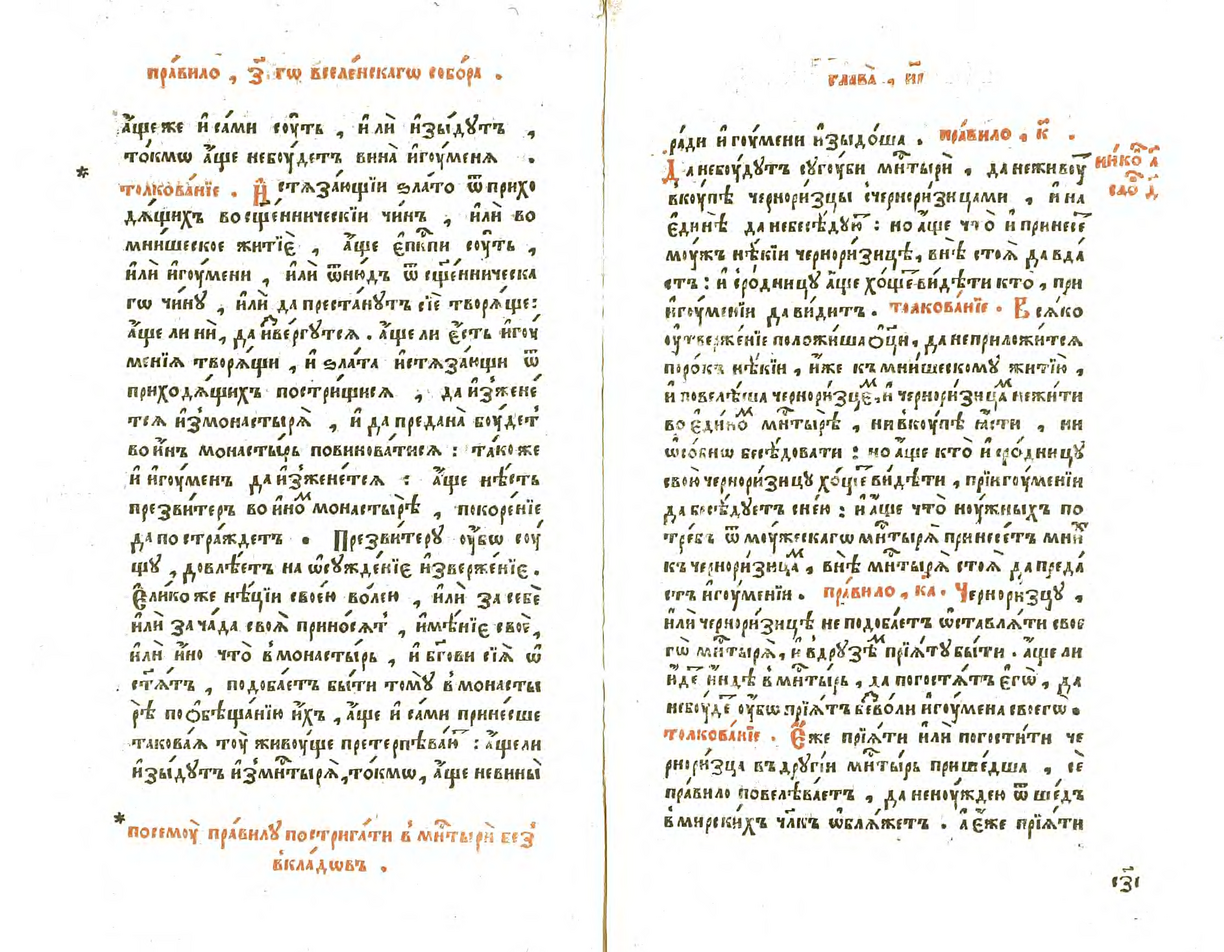 пра́вило , з҃. гѡ вселе́нскагѡ собо́ра .
а҆́щеже и҆ са́ми соу́ть , и҆ лѝ и҆зы́дутъ ,
то́кмѡ а҆́ще небоу́детъ вина̀ и҆гоу́менꙗ .
* толкова́нїе . И҆ стѧза́ющїи ꙁла́то ѿ прихо
дѧ́щихъ во сщ҃е́нническїи чи́нъ , и҆лѝ во
мни́шеское житїѐ , а҆́ще є҆пк҃пи соу́ть ,
и҆лѝ и҆гоу́мени , и҆лѝ ѿню́дъ ѿ сщ҃е́нническа
гѡ чи́ну , и҆лѝ да преста́нутъ сїѐ творѧ́ще:
а҆́ще ли нѝ, да и҆зве́ргутсѧ . а҆́ще ли є҆́сть и҆гоу́
менїꙗ творѧ́щи , и҆ ꙁла́та и҆стѧза́ющи ѿ
приходѧ́щихъ пострищи́сѧ , да и҆зжене́
тсѧ и҆змонастырѧ̀ , и҆ да предана̀ боу́детъ
во и҆́нъ монасты́рь повинова́тисѧ : та́коже
и҆ и҆гоу́менъ да и҆зжене́тсѧ : а҆́ще нѣ́сть
презви́теръ во и҆но́м монастырѣ̀ , покоре́нїе
да постра́ждетъ . Презви́теру оу҆́бѡ соу́
щу , довлѣ́етъ на ѡ҆сужде́нїе и҆зверже́нїе .
Є҆ли́коже нѣ́цїи свое́ю во́лею , и҆лѝ за себѐ
и҆лѝ за ча́да своѧ̀ прино́сѧт , и҆мѣ́нїе своѐ,
и҆лѝ и҆́но что̀ в монасты́рь , и҆ бг҃ови сїѧ̀ ѡ҆
ст҃ѧ́тъ , подоба́етъ бы́ти томꙋ̀ в монасты
рѣ̀ по ѻ҆бѣща́нїю и҆́хъ , а҆́ще и҆ са́ми прине́сше
такова́ѧ тоу̀ живоу́ще претерпѣва́ют : а҆́щели
и҆зы́дутъ и҆змн҃тырѧ̀, то́кмѡ, а҆́ще невины̀
* посемоу̀ пра́вилꙋ пострига́ти в мн҃тырѝ без
вкла́дѡвъ .
глава̀ , и҃і
ра́ди и҆гоу́мени и҆зыдо́ша . пра́вило , к҃ .
Да небоу́дутъ сугоу́би мн҃тырѝ , да неживоу́
вкоу́пѣ чернори́зцы счернори́зицами , и҆ на
є҆ди́нѣ да небесѣ́дую : но а҆́ще что̀ и҆ принесе́
моу́жъ нѣ́кїи чернори́зицѣ, внѣ̀ стоѧ̀ да вда́
стъ : и҆ сро́дницу а҆́ще хо́щет ви́дѣти кто̀ , при
и҆гоу́менїи да ви́дитъ . толкова́нїе . Всѧ́ко
оу҆твержéнїе положи́ша ѻ҆ц҃ы, да неприложи́тсѧ
поро́къ нѣ́кїи , и҆́же къ мни́шескому житїю̀ ,
и҆ повелѣ́ша чернори́зцем, и҆ чернори́зицам нежи́ти
во є҆ди́ном мн҃тырѣ̀ , ни вкоу́пѣ ꙗ҆́сти , ни
ѡ҆со́бнѡ бесѣ́довати : но а҆́ще кто̀ и҆ сро́дницу
свою̀ чернори́зицу хо́щет ви́дѣти , при и҆гоу́менїи
да бесѣ́дуетъ сне́ю : и҆ а҆́ще что̀ ноу́жныхъ по
тре́бъ ѿ моу́жескагѡ мн҃тырѧ̀ принесе́тъ мни́х
къ чернори́зицам , внѣ̀ мн҃тырѧ̀ стоѧ̀ да преда́
стъ и҆гоу́менїи . пра́вило , ка҃ . Чернори́зцу ,
и҆лѝ чернори́зицѣ не подоба́етъ ѡ҆ставлѧ́ти свое
гѡ̀ мн҃тырѧ̀, и҆ вдру́зѣм прїѧ́ту бы́ти . а҆́ще ли
и҆́дет и҆́ндѣ в мн҃ты́рь , да погостѧ́тъ є҆гѡ̀ , да
небоу́дет оу҆́бѡ прїѧ́тъ без во́ли и҆гоу́мена своегѡ̀ .
толкова́нїе . Є҆́же прїѧ́ти и҆лѝ погости́ти че
рнори́зца въ другі́и мн҃ты́рь прише́дша , сѐ
пра́вило повелѣва́етъ , да неноу́ждею ѿше́дъ
в мирски́хъ чл҃къ ѡ҆блѧ́жетъ . а҆ є҆́же прїѧ́ти
•з҃і•